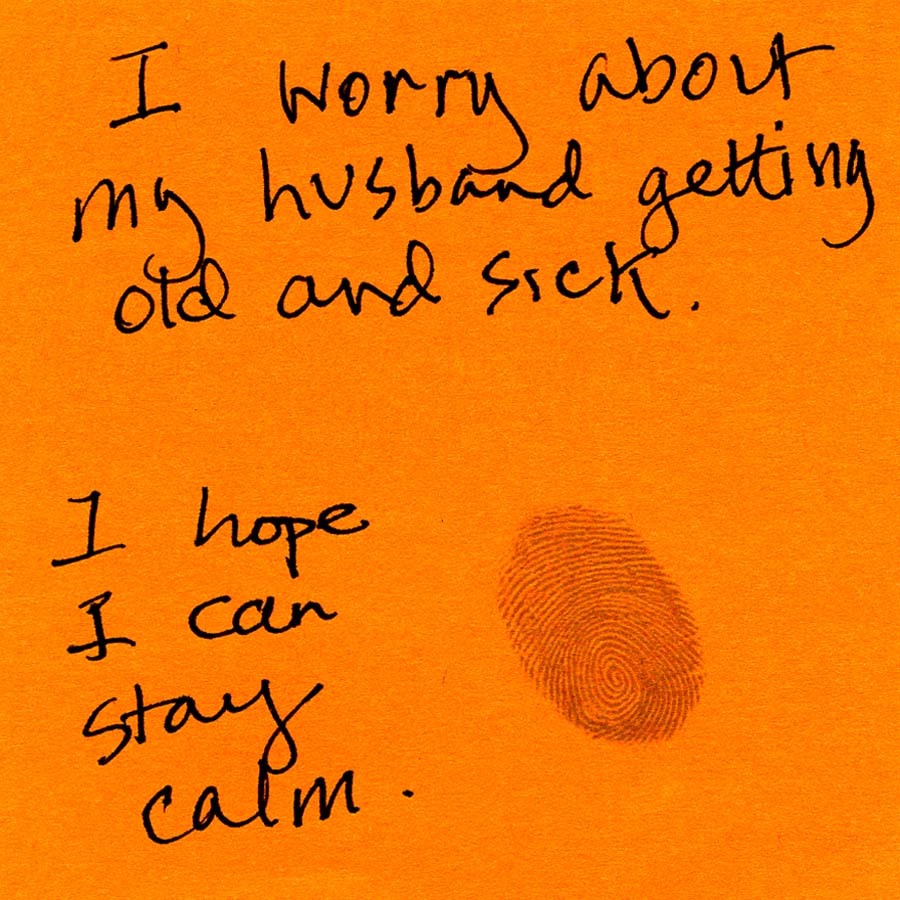 I worry about
my husband getting
old and sick.
I hope
I can
stay
calm.